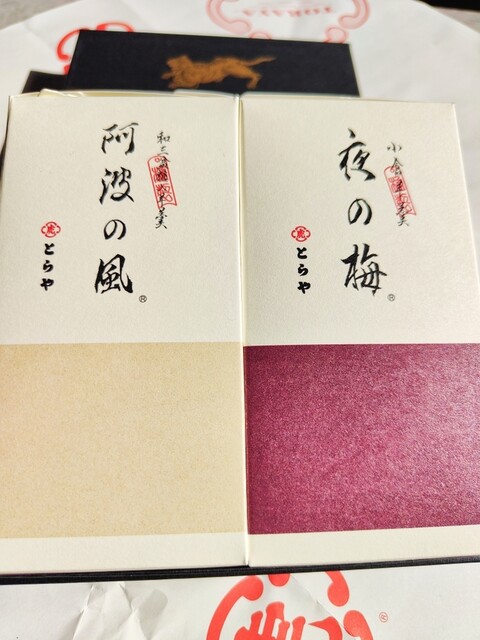 TORAYA
小倉羊羹
夜の梅®
虎
とらや
和三盆糖入羊羹
阿波の風®
虎
とらや